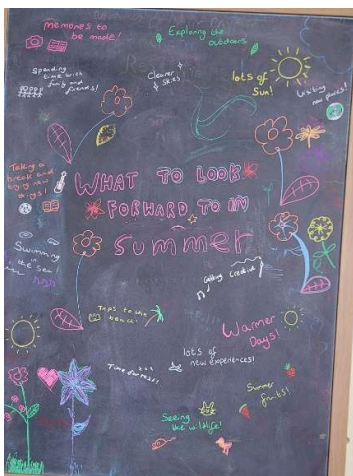 memories to
be made!
Exploring the
outdoors
Spending
time with
family and
friends!
Clearer
skies
lots of
Sun!
Visiting
new places!
Taking a
break and
trying new
things!
WHAT TO LOOK
FORWARD TO IN
Summer
Swimming
in the
Sea!
Getting Creative
Trips to the
beach!
Warmer
Days!
lots of
new experiences!
Time
Summer
fruits!
Seeing
the wildlife!